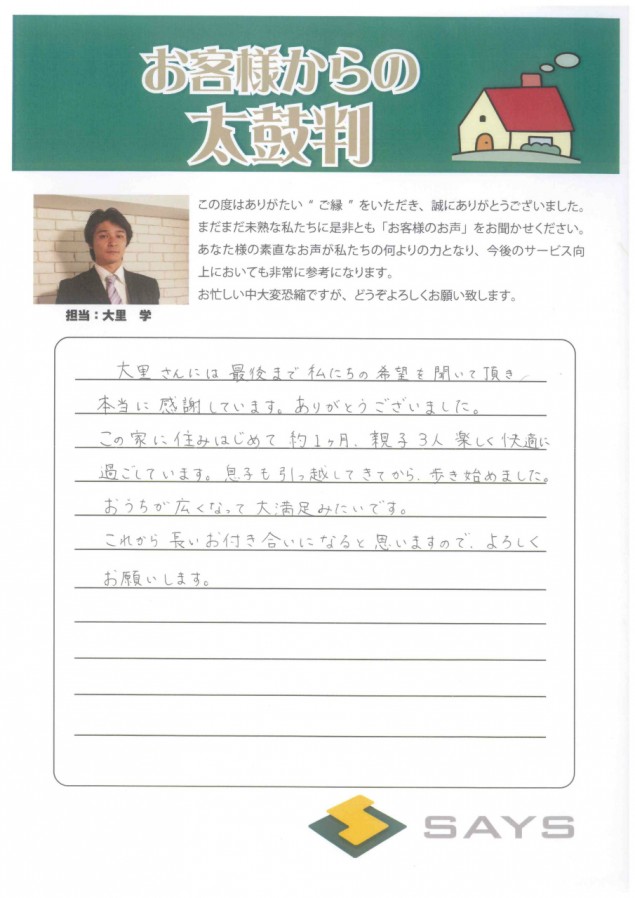 お客様からの
太鼓判
この度はありがたい“ご縁”をいただき、誠にありがとうございました。
まだまだ未熟な私たちに是非とも「お客様のお声」をお聞かせください。
あなた様の素直なお声が私たちの何よりの力となり、今後のサービス向
上においても非常に参考になります。
お忙しい中大変恐縮ですが、どうぞよろしくお願い致します。
担当：大里　学
大里さんには最後まで私たちの希望を聞いて頂き、
本当に感謝しています。ありがとうございました。
この家に住みはじめて約1ヶ月、親子3人楽しく快適に
過ごしています。息子も引っ越してきてから、歩き始めました。
おうちが広くなって大満足みたいです。
これから長いお付き合いになると思いますので、よろしく
お願いします。
SAYS